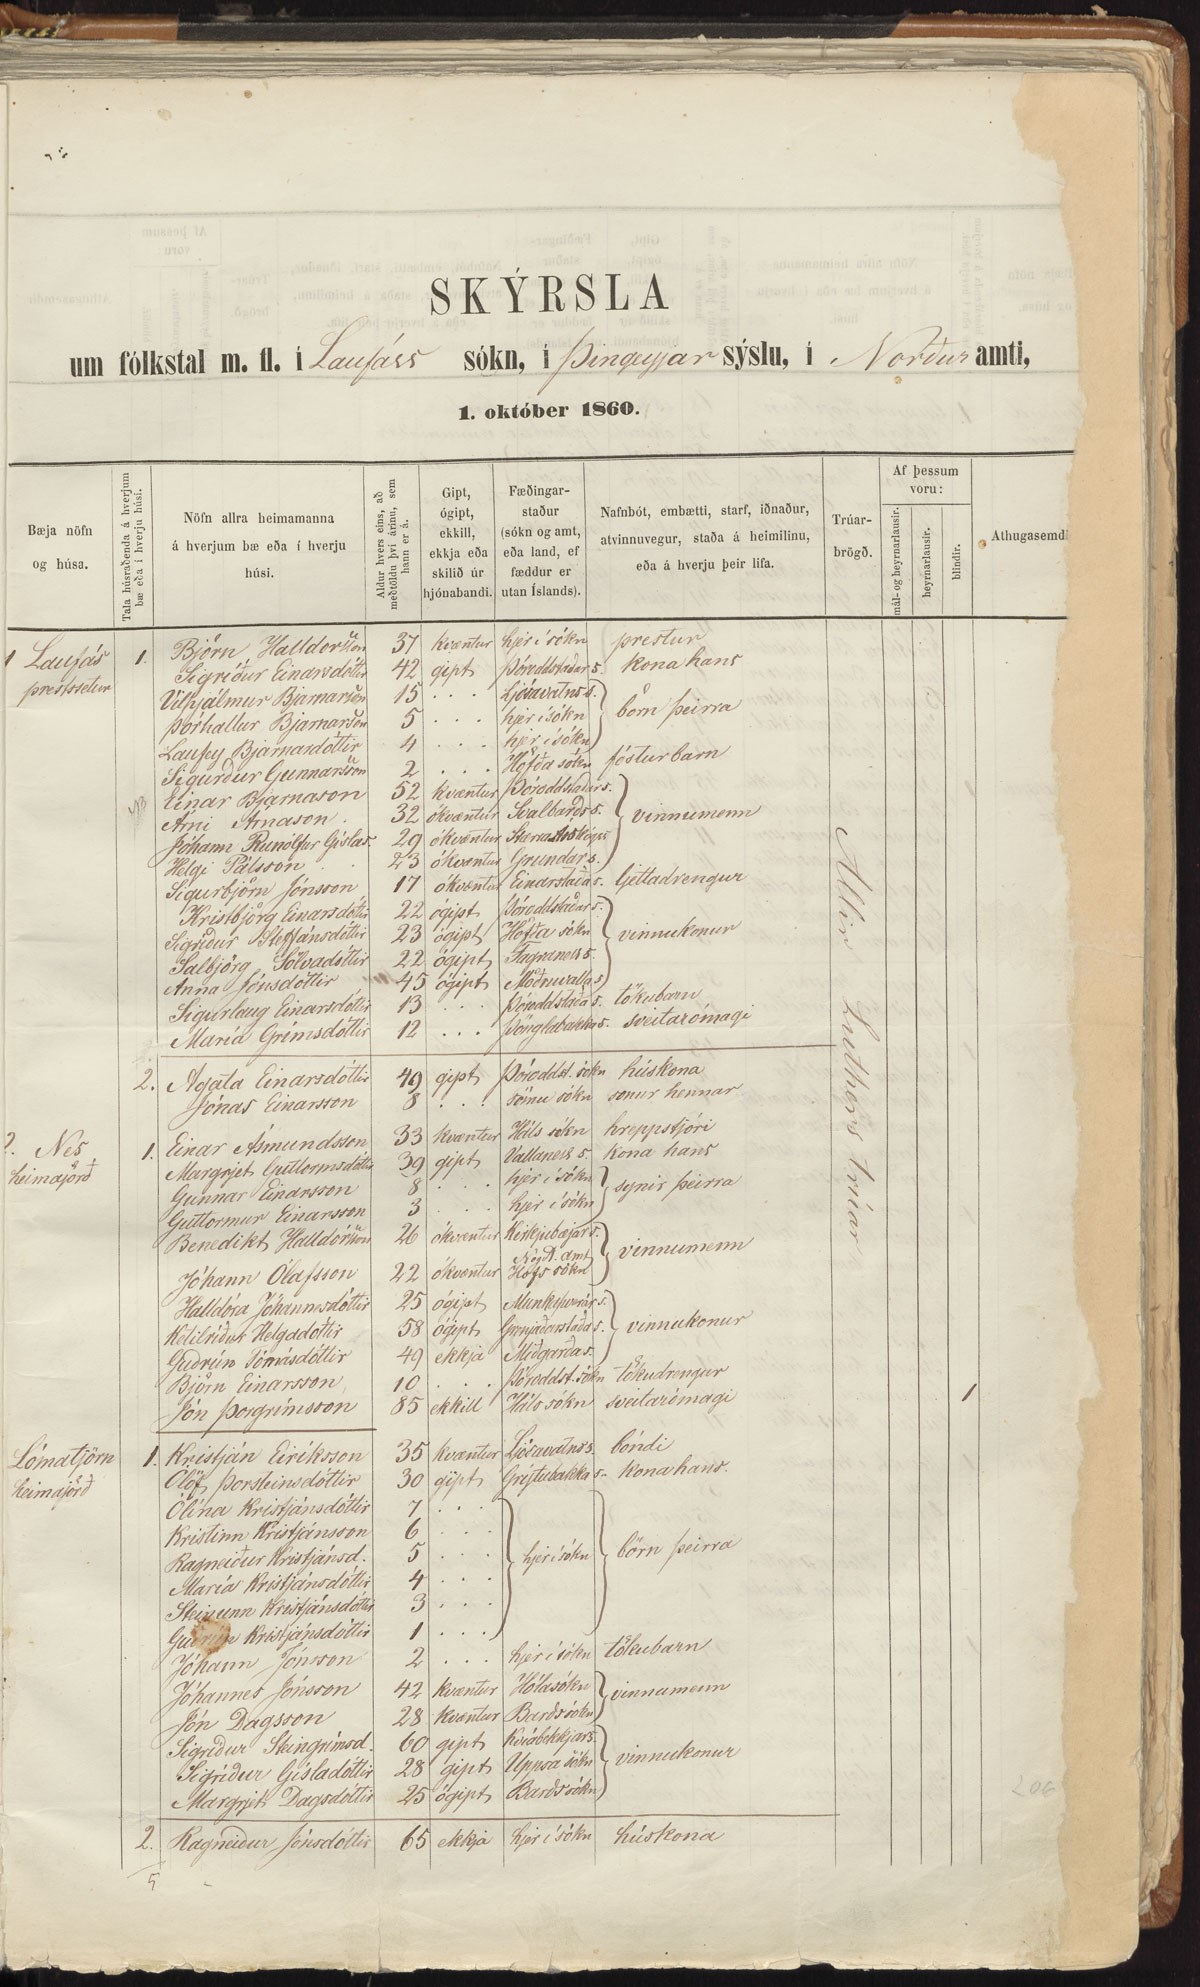 SKÝRSLA
um fólkstal m. fl. í Laufáss sókn, í Þingeyjar sýslu, í Norður amti,
1. október 1860.
Bæja nöfn og húsa.
Tala húsráðenda á hverjum bæ eða í hverju húsi.
Nöfn allra heimamanna á hverjum bæ eða í hverju húsi.
Aldur hvers eins, að meðtöldu því árinu, sem hann er á.
Gipt, ógipt, ekkill, ekkja eða skilið úr hjónabandi.
Fæðingar-staður (sókn og amt, eða land, ef fæddur er utan Íslands).
Nafnbót, embætti, starf, iðnaður, atvinnuvegur, staða á heimilinu, eða á hverju þeir lifa.
Trúar-brögð.
Af þessum voru:
mál- og heyrnarlausir.
heyrnarlausir.
blindir.
Athugasemdi
1 Laufás 1. Björn Halldorsson 37 kvæntur hjer í sókn prestur
prestssetur Sigríður Einarsdóttir 42 gipt Þóroddstaðar s. kona hans
Vilhjálmur Bjarnarson 15 . . . Ljósavatns s. börn þeirra
Þórhallur Bjarnarson 5 . . . hjer í sókn
Laufey Bjarnardóttir 4 . . . hjer í sókn
Sigurður Gunnarsson 2 . . . Höfða sókn fósturbarn
Einar Bjarnason 52 kvæntur Þóroddstaðar s.
Árni Árnason 32 ókvæntur Svalbarðs s. vinnumenn
Jóhann Runólfur Gíslas. 29 ókvæntur
Helgi Pálsson 23 ókvæntur Grundar s.
Sigurbjörn Jónsson 17 ókvæntur Einarstaða s. Ljettadrengur
Kristbjörg Einarsdóttir 22 ógipt Þóroddstaðar s.
Sigríður Steffánsdóttir 23 ógipt Höfða sókn vinnukonur
Salbjörg Sölvadóttir 22 ógipt Fagraness s.
Anna Jónsdóttir 45 ógipt Möðruvalla s.
Sigurlaug Einarsdóttir 13 . . Þóroddstaða s. tökubarn
María Grímsdóttir 12 . . . Þönglabakka s. sveitarómagi
2. Agata Einarsdóttir 49 gipt Þóroddst. sókn húskona
Jónas Einarsson 8 . . . sömu sókn sonur hennar
2. Nes, 1. Einar Ásmundsson 33 kvæntur Háls sókn hreppstjóri
heimajörð Margrjet Guttormsdóttir 39 gipt Vallaness s. kona hans
Gunnar Einarsson 8 . . . hjer í sókn synir þeirra
Guttormur Einarsson 3 . . . hjer í sókn
Benedikt Halldórsson 26 ókvæntur Kirkjubæjar s. vinnumenn
Norð. amt
Jóhann Ólafsson 22 ókvæntur Hofs sókn
Halldóra Jóhannesdóttir 25 ógipt Munkaþverár s.
Ketilríður Helgadóttir 58 ógipt Grenjaðarstaða s. vinnukonur
Guðrún Tómásdóttir 49 ekkja Miðgarða s.
Björn Einarsson 10 . . . Þóroddst. sókn tökudrengur
Jón Þorgrímsson 85 ekkill Háls sókn sveitarómagi 1
Lómatjörn 1. Kristján Eiríksson 35 kvæntur Ljósavatns s. bóndi
heimajörð Ólöf Þorsteinsdóttir 30 gipt Grýtubakka s. kona hans.
Ólína Kristjánsdóttir 7 . . .
Kristinn Kristjánsson 6 . . .
Ragneiður Kristjánsd. 5 . . . hjer í sókn börn þeirra
María Kristjánsdóttir 4 . . .
Steinunn Kristjánsdóttir 3 . . .
Guðrún Kristjánsdóttir 1 . . .
Jóhann Jónsson 2 . . . hjer í sókn tökubarn
Jóhannes Jónsson 42 kvæntur Hólasókn vinnumenn
Jón Dagsson 28 kvæntur Barðs sókn
Sigríður Steingrímsd. 60 gipt Kvíabekkjar s.
Sigríður Gísladóttir 28 gipt Uppsa sókn vinnukonur
Margrjet Dagsdóttir 25 ógipt Barðs sókn
2. Ragneiður Jónsdóttir 65 ekkja hjer í sókn húskona
5
Allir Luthers trúar
206